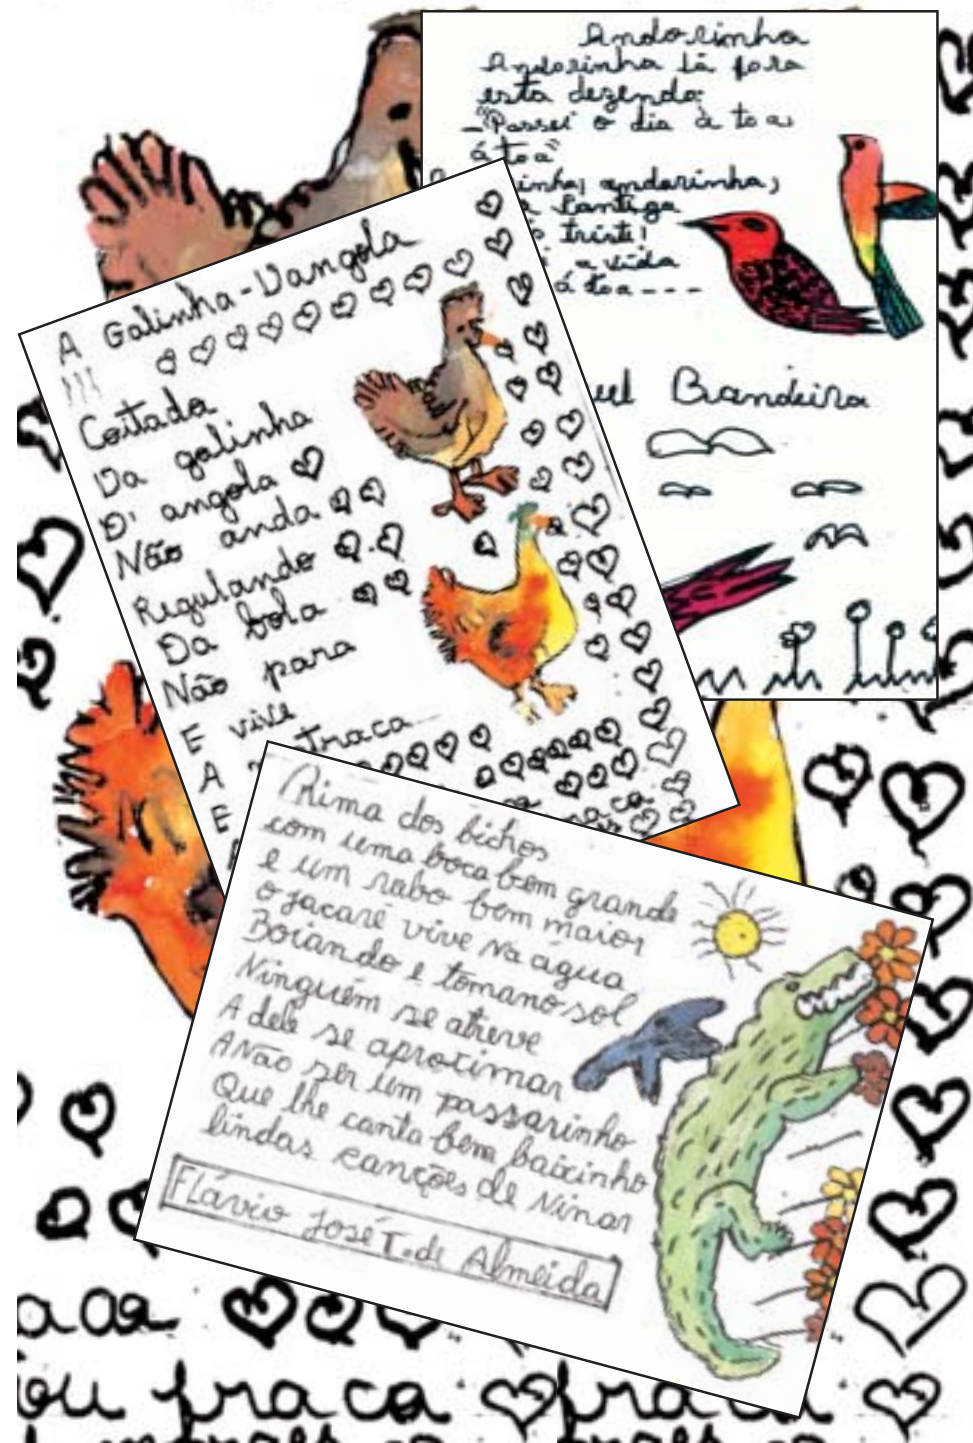 Andorinha
Andorinha lá fora
esta dezendo:
_"Passei o dia à toa,
á toa"
inha, andorinha,
cantiga
triste!
a vida
á toa - - -
uel Bandeira
A Galinha-Dangola
!!!
Coitada
Da galinha
D' angola
Não anda
Regulando
Da bola
Não para
E vive
A matraca
E
Rima dos bichos
com uma boca bem grande
e um rabo bem maior
o jacaré vive na água
Boiando e tomano sol
Ninguém se atreve
A dele se aproximar
A Não ser um passarinho
Que lhe canta bem baixinho
lindas canções de Ninar
Flávio José T. de Almeida
ou fraca